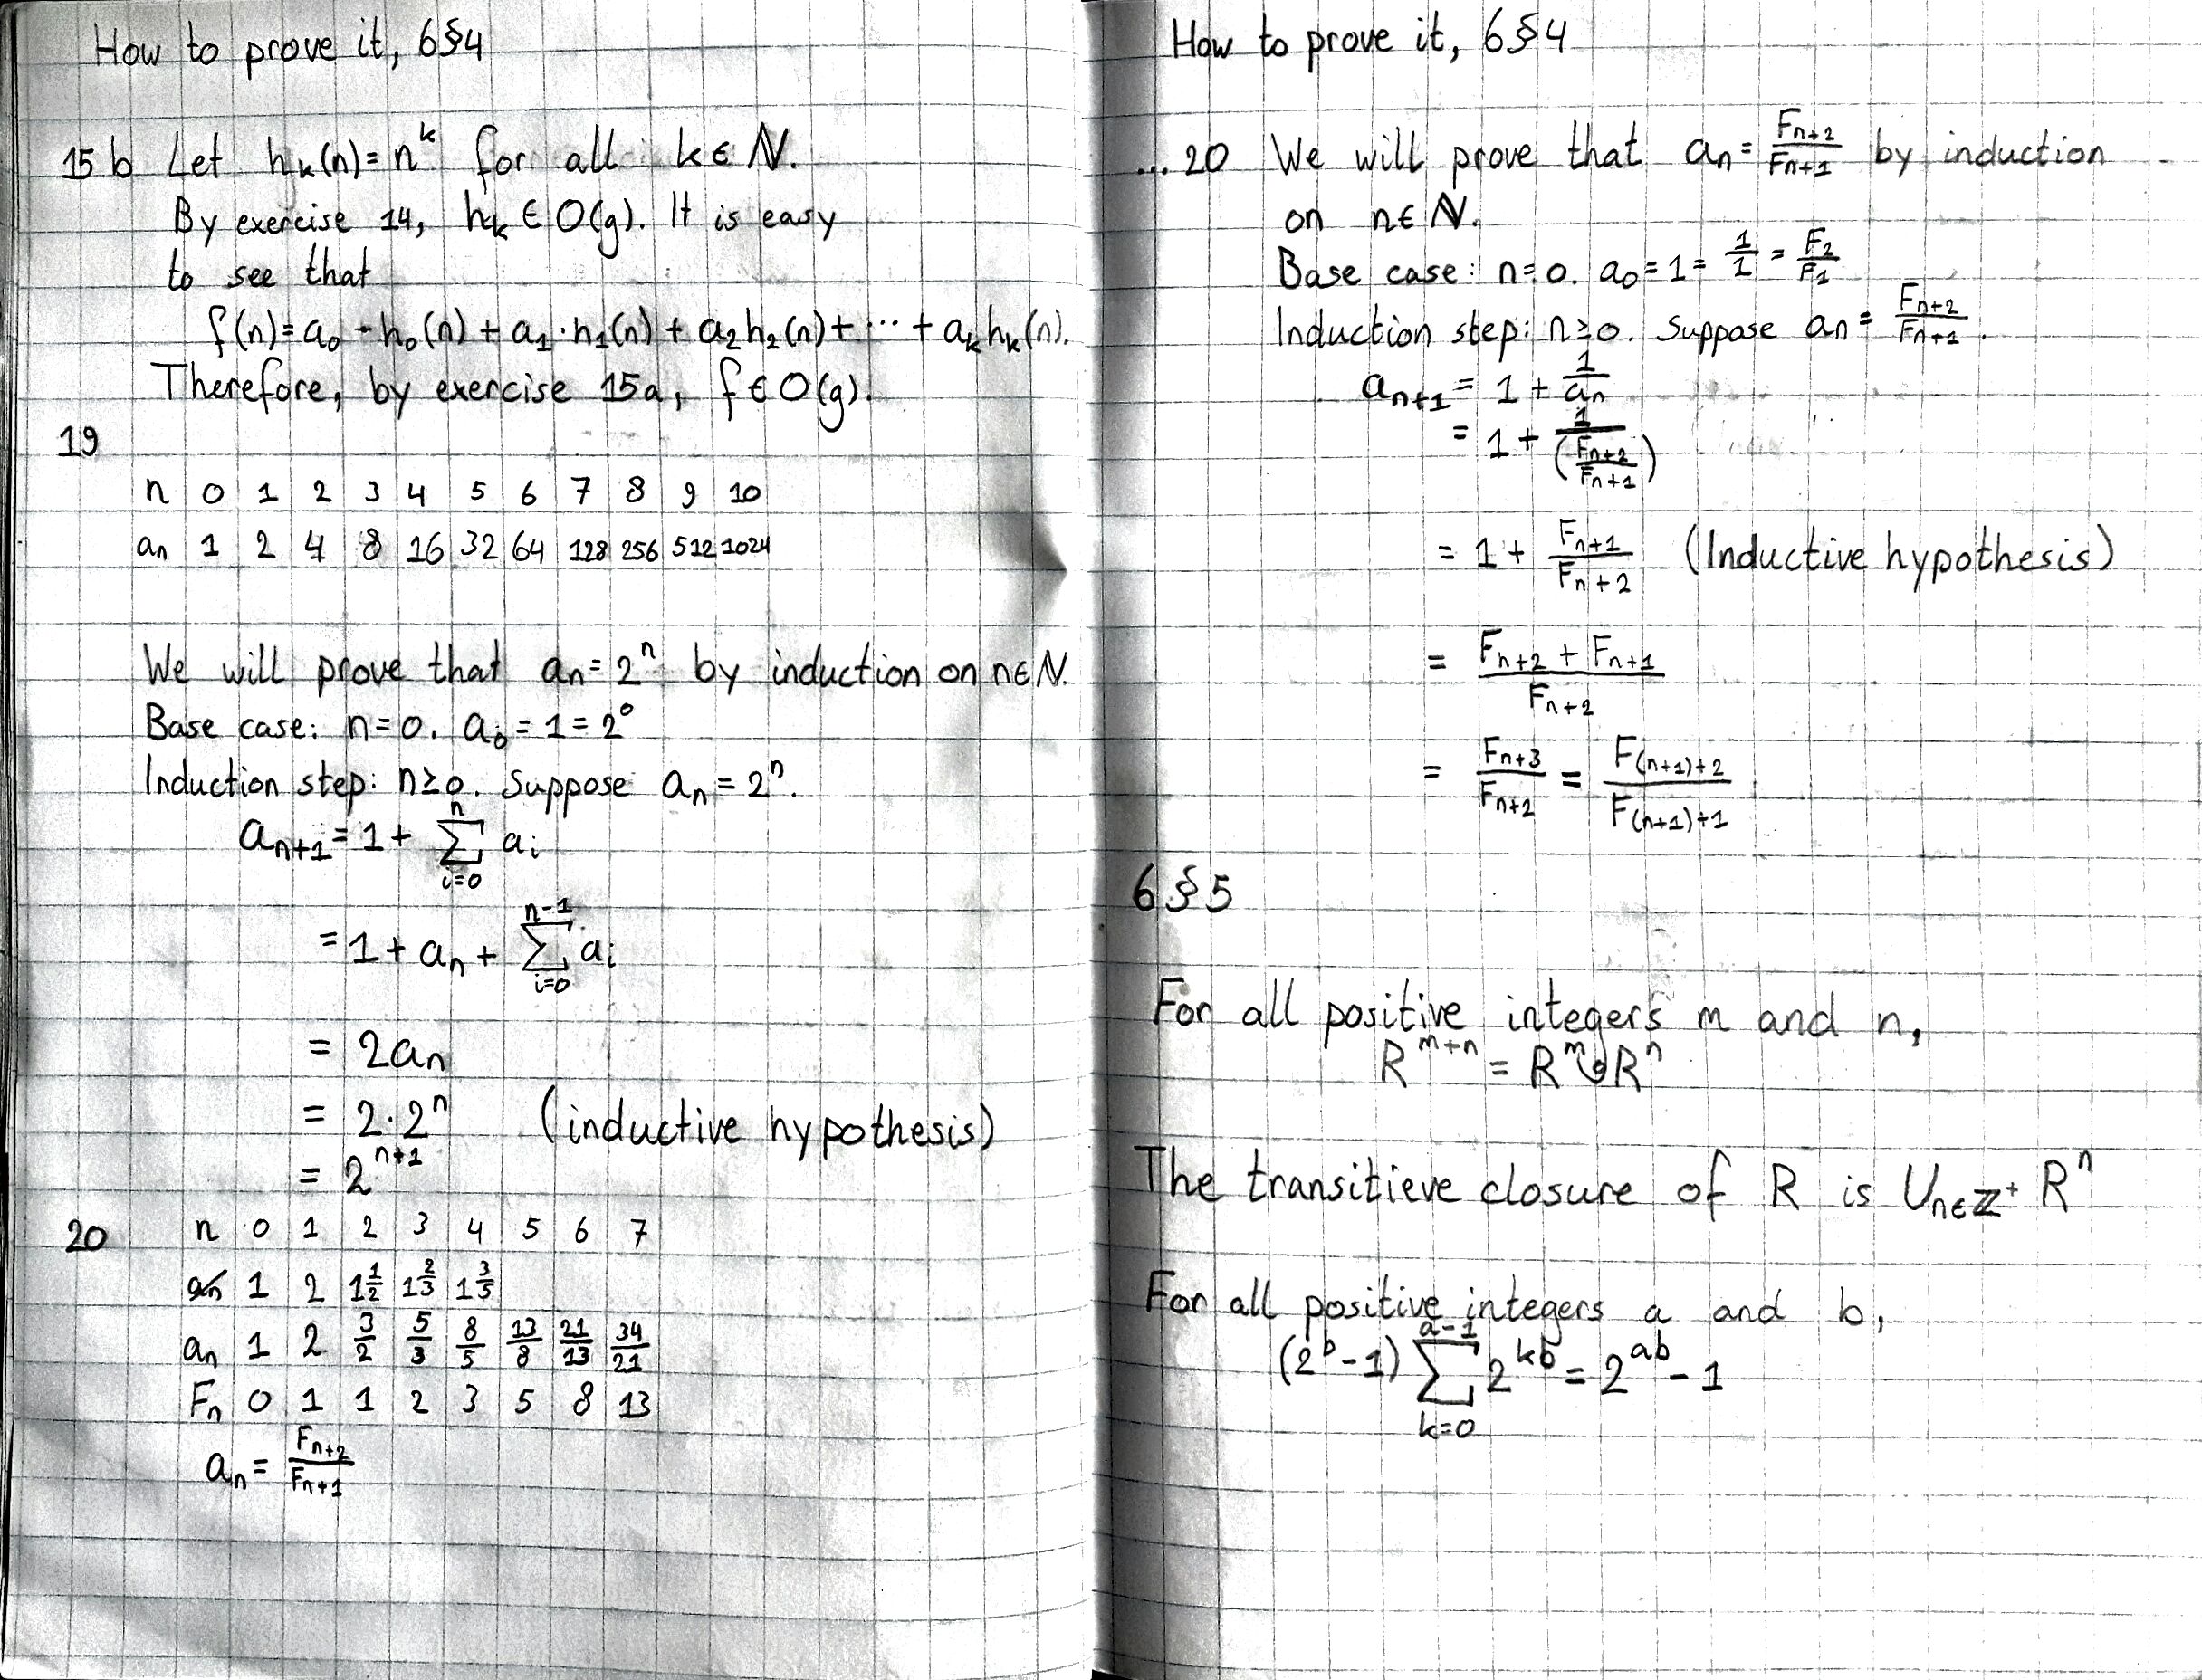 How to prove it, 6§4
15 b Let hₖ(n) = nᵏ for all k ∈ ℕ.
By exercise 14, hₖ ∈ O(g). It is easy
to see that
f(n) = a₀ · h₀(n) + a₁ · h₁(n) + a₂h₂(n) + ⋯ + aₖhₖ(n).
Therefore, by exercise 15a, f ∈ O(g).
19
n 0 1 2 3 4 5 6 7 8 9 10
aₙ 1 2 4 8 16 32 64 128 256 512 1024
We will prove that aₙ = 2ⁿ by induction on n ∈ ℕ.
Base case: n = 0. a₀ = 1 = 2⁰
Induction step: n ≥ 0. Suppose aₙ = 2ⁿ.
aₙ₊₁ = 1 + ∑_{i=0}^{n} aᵢ
= 1 + aₙ + ∑_{i=0}^{n-1} aᵢ
= 2aₙ
= 2·2ⁿ (inductive hypothesis)
= 2ⁿ⁺¹
20 n 0 1 2 3 4 5 6 7
aₙ 1 2 1 1/2 1 2/3 1 3/5
aₙ 1 2 3/2 5/3 8/5 13/8 21/13 34/21
Fₙ 0 1 1 2 3 5 8 13
aₙ = Fₙ₊₂/Fₙ₊₁
How to prove it, 6§4
... 20 We will prove that aₙ = Fₙ₊₂/Fₙ₊₁ by induction
on n ∈ ℕ.
Base case: n = 0. a₀ = 1 = 1/1 = F₂/F₁
Induction step: n ≥ 0. Suppose aₙ = Fₙ₊₂/Fₙ₊₁.
aₙ₊₁ = 1 + 1/aₙ
= 1 + 1/(Fₙ₊₂/Fₙ₊₁)
= 1 + Fₙ₊₁/Fₙ₊₂ (Inductive hypothesis)
= (Fₙ₊₂ + Fₙ₊₁)/Fₙ₊₂
= Fₙ₊₃/Fₙ₊₂ = F₍ₙ₊₁₎₊₂/F₍ₙ₊₁₎₊₁
6§5
For all positive integers m and n,
Rᵐ⁺ⁿ = Rᵐ ∘ Rⁿ
The transitieve closure of R is ∪_{n∈ℤ⁺} Rⁿ
For all positive integers a and b,
(2ᵇ - 1) ∑_{k=0}^{a-1} 2ᵏᵇ = 2ᵃᵇ - 1